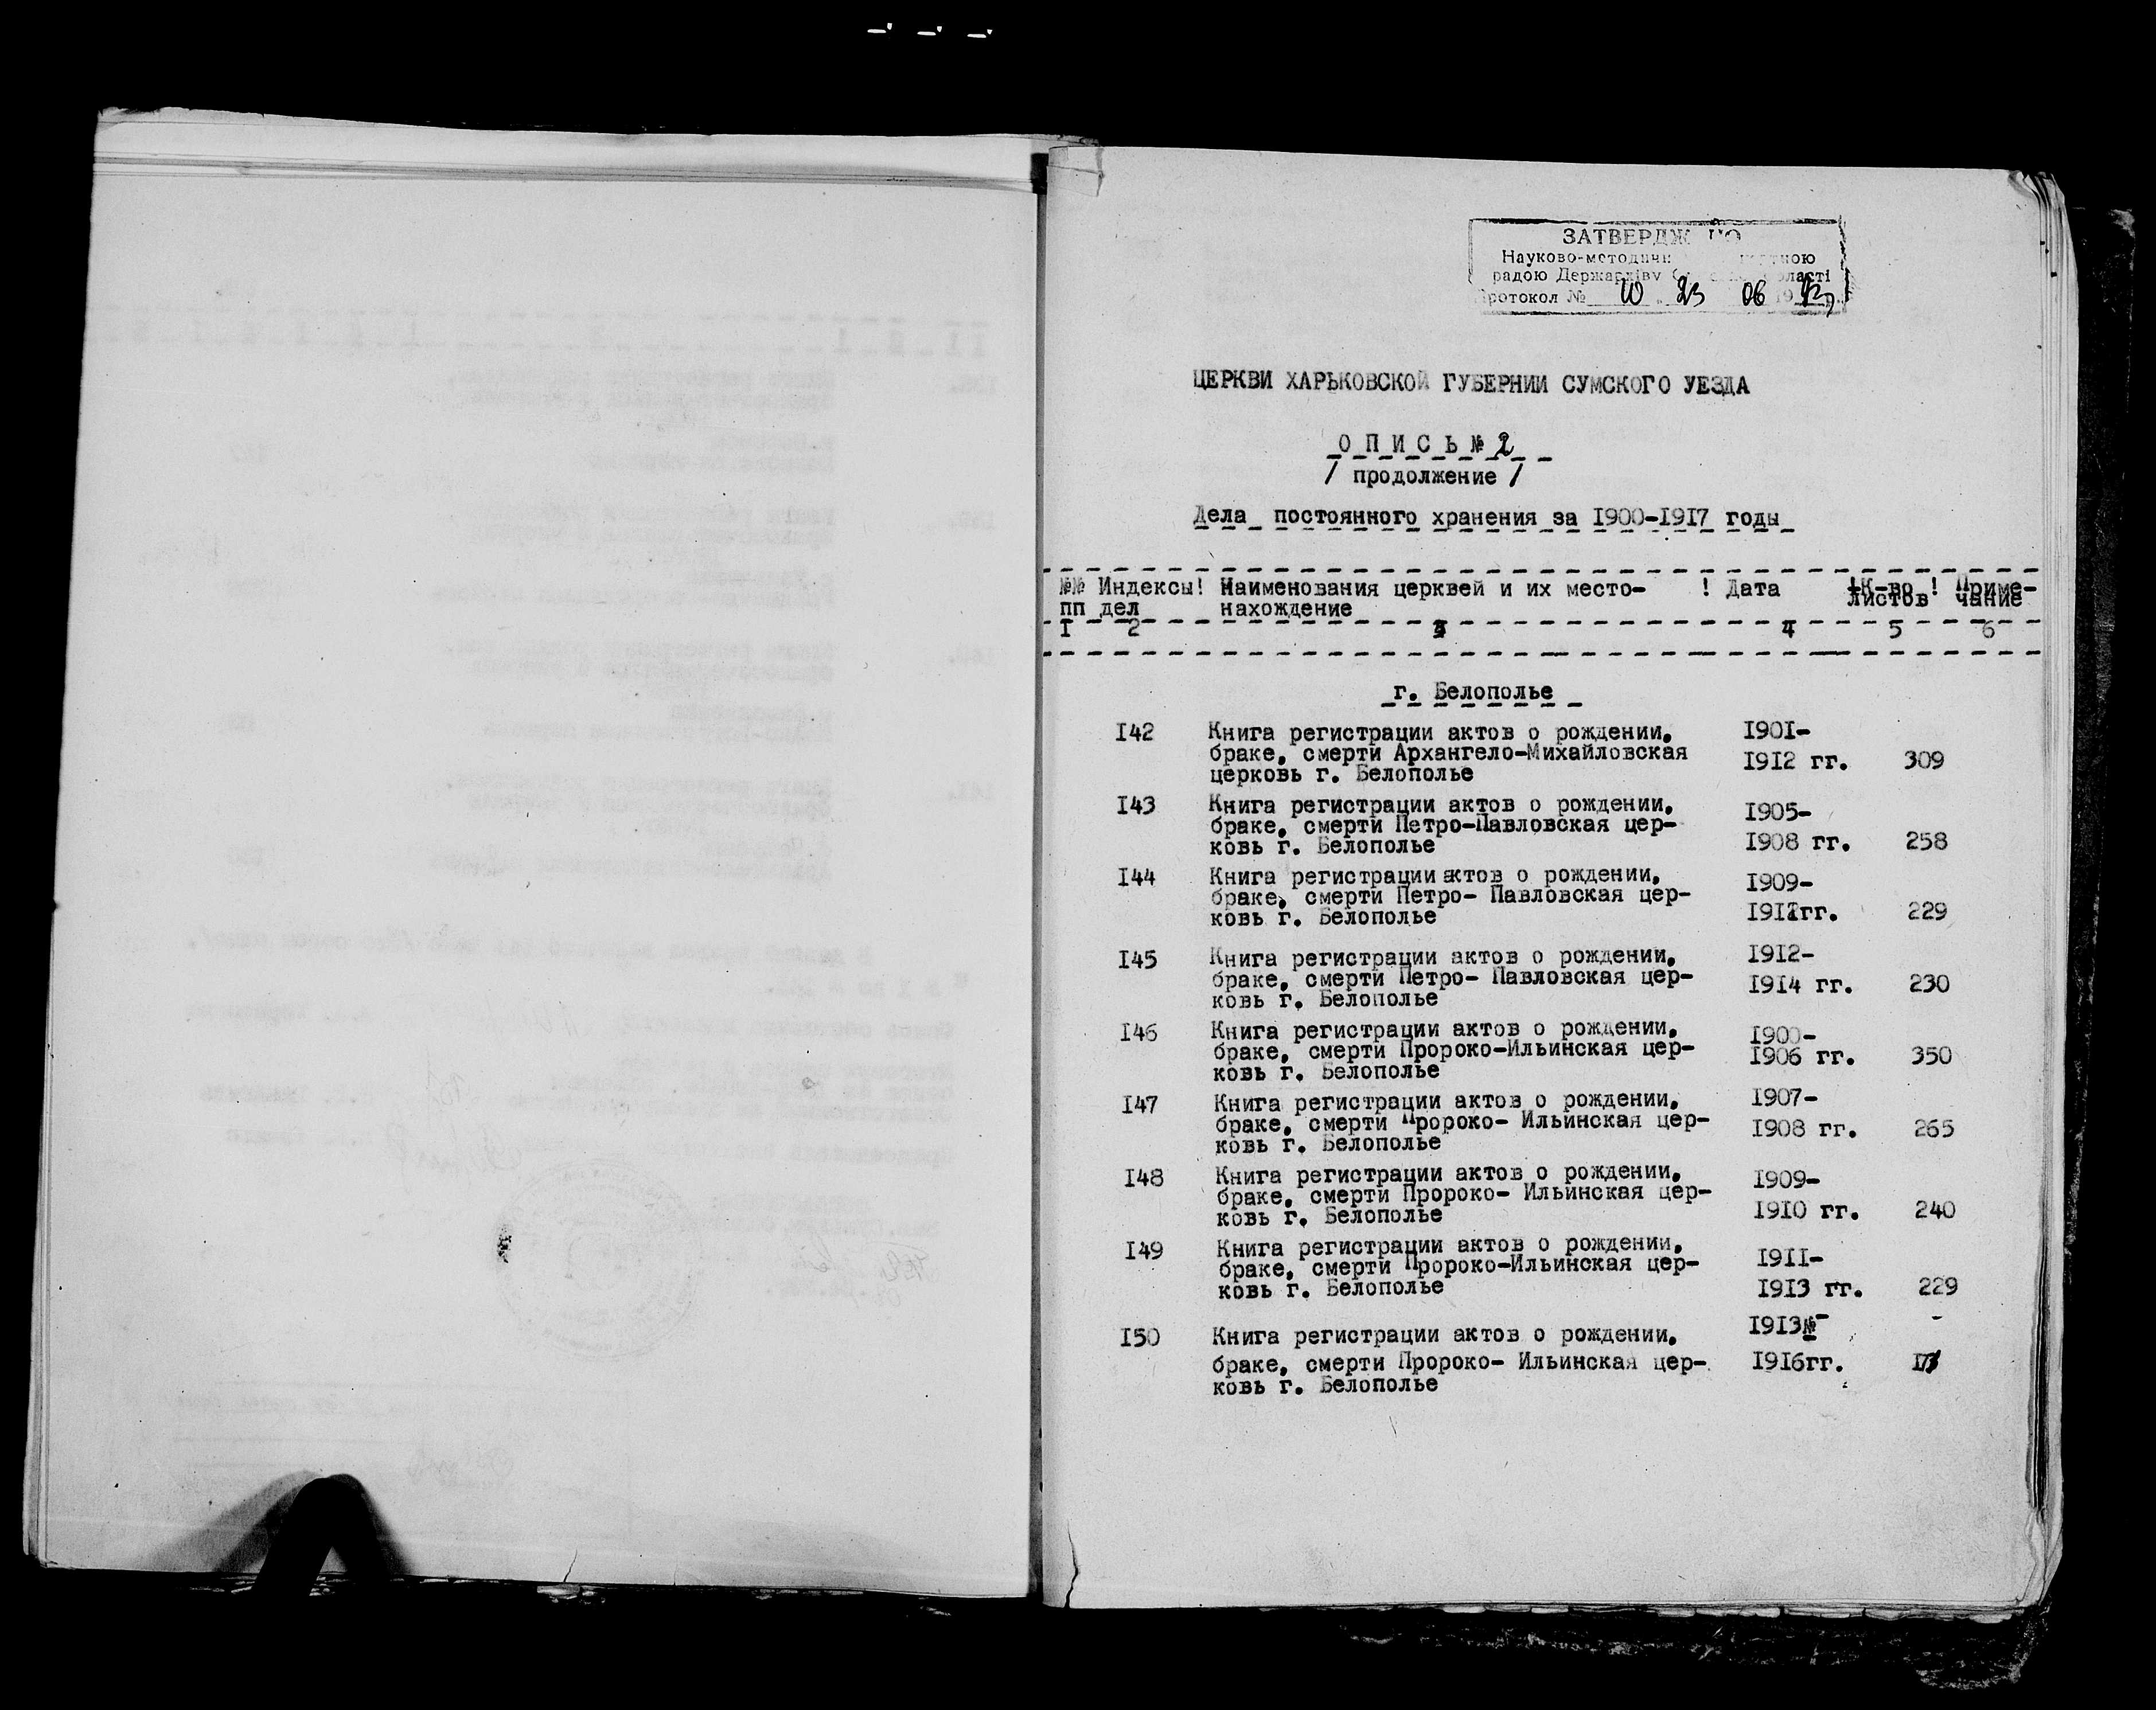 ЗАТВЕРДЖ НО
Науково-методичн
радою Держархіву області
Протокол № 10 23 06 19
ЦЕРКВИ ХАРЬКОВСКОЙ ГУБЕРНИИ СУМСКОГО УЕЗДА
О П И С Ь № 2
/ продолжение /
Дела постоянного хранения за 1900-1917 годы
№№ Индексы! Наименования церквей и их место- ! Дата !К-во ! Приме-
пп дел нахождение листов чание
I 2 3 4 5 6
г. Белополье
I42 Книга регистрации актов о рождении, I90I-
браке, смерти Архангело-Михайловская
церковь г. Белополье I9I2 гг. 309
I43 Книга регистрации актов о рождении, I905-
браке, смерти Петро-Павловская цер-
ковь г. Белополье I908 гг. 258
I44 Книга регистрации актов о рождении, I909-
браке, смерти Петро- Павловская цер-
ковь г. Белополье гг. 229
I45 Книга регистрации актов о рождении, I9I2-
браке, смерти Петро- Павловская цер- I9I4 гг. 230
ковь г. Белополье
I46 Книга регистрации актов о рождении, I900-
браке, смерти Пророко-Ильинская цер- I906 гг. 350
ковь г. Белополье
I47 Книга регистрации актов о рождении, I907-
браке, смерти Пророко- Ильинская цер- I908 гг. 265
ковь г. Белополье
I48 Книга регистрации актов о рождении, I909-
браке, смерти Пророко- Ильинская цер-
ковь г. Белополье I9I0 гг. 240
I49 Книга регистрации актов о рождении, I9II-
браке, смерти Пророко-Ильинская цер-
ковь г. Белополье I9I3 гг. 229
I50 Книга регистрации актов о рождении, I9I3-
браке, смерти Пророко- Ильинская цер- I9I6гг.
ковь г. Белополье